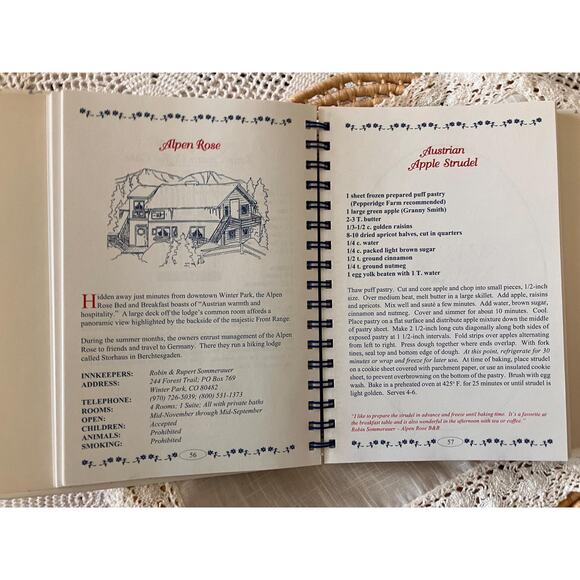 Alpen Rose
Hidden away just minutes from downtown Winter Park, the Alpen
Rose Bed and Breakfast boasts of "Austrian warmth and
hospitality." A large deck off the lodge's common room affords a
panoramic view highlighted by the backside of the majestic Front Range.
During the summer months, the owners entrust management of the Alpen
Rose to friends and travel to Germany. There they run a hiking lodge
called Storhaus in Berchtesgaden.
INNKEEPERS: Robin & Rupert Sommerauer
ADDRESS: 244 Forest Trail; PO Box 769
Winter Park, CO 80482
TELEPHONE: (970) 726-5039; (800) 531-1373
ROOMS: 4 Rooms; 1 Suite; All with private baths
OPEN: Mid-November through Mid-September
CHILDREN: Accepted
ANIMALS: Prohibited
SMOKING: Prohibited
56
Austrian
Apple Strudel
1 sheet frozen prepared puff pastry
(Pepperidge Farm recommended)
1 large green apple (Granny Smith)
2-3 T. butter
1/3-1/2 c. golden raisins
8-10 dried apricot halves, cut in quarters
1/4 c. water
1/4 c. packed light brown sugar
1/2 t. ground cinnamon
1/4 t. ground nutmeg
1 egg yolk beaten with 1 T. water
Thaw puff pastry. Cut and core apple and chop into small pieces, 1/2-inch
size. Over medium heat, melt butter in a large skillet. Add apple, raisins
and apricots. Mix well and sauté a few minutes. Add water, brown sugar,
cinnamon and nutmeg. Cover and simmer for about 10 minutes. Cool.
Place pastry on a flat surface and distribute apple mixture down the middle
of pastry sheet. Make 2 1/2-inch long cuts diagonally along both sides of
exposed pastry at 1 1/2-inch intervals. Fold strips over apples alternating
from left to right. Press dough together where ends overlap. With fork
tines, seal top and bottom edge of dough. At this point, refrigerate for 30
minutes or wrap and freeze until baking. At time of baking, place strudel
on a cookie sheet covered with parchment paper, or use an insulated cookie
sheet, to prevent overbrowning on the bottom of the pastry. Brush with egg
wash. Bake in a preheated oven at 425° F. for 25 minutes or until strudel is
light golden. Serves 4-6.
"I like to prepare the strudel in advance and freeze until baking time. It's a favorite at
the breakfast table and is also wonderful in the afternoon with tea or coffee."
Robin Sommerauer - Alpen Rose B&B
57